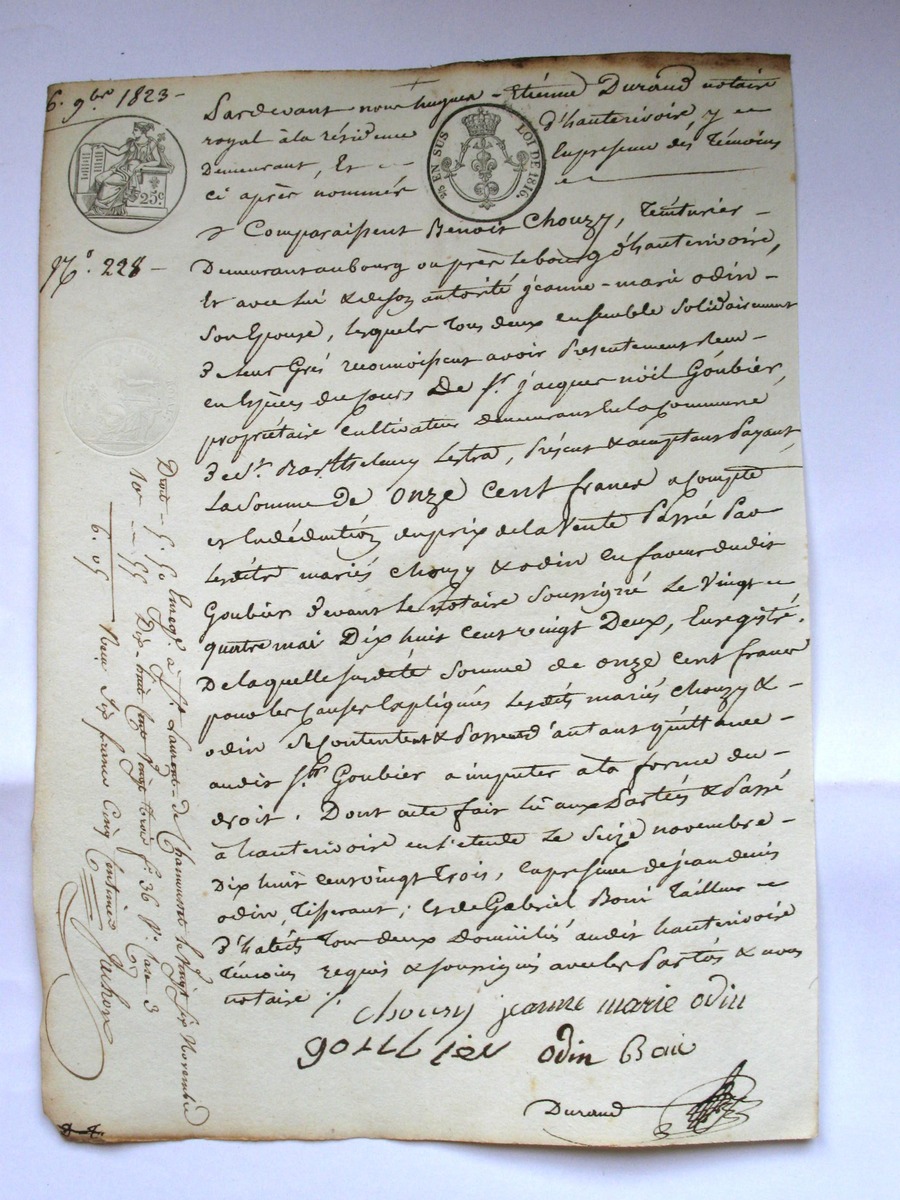 6. 9bre 1823 -
Pardevant nous hugues - Etienne Durand notaire
royal à la résidence d'hauterivoire, y
Demeurant, Et En presence des Témoins
ci après nommés
EN SUS LOI DE 1816.
25 c.
Comparaissent Benoit Chouzy, Teinturier -
N°. 228 -
Demeurant au bourg ou près le bourg d'hauterivoire,
Et avec lui & de son autorité jeanne - marie odin -
Son Epouse, lesquels Tous deux ensemble Solidairement
De leur Gré reconnoissent avoir Presentement Reçu
en Espèces du jours De Sr. jacques nöel Goubier,
propriétaire Cultivateur demeurant En la Commune
De St. Barthelemy Lestra, Présent & acceptant Payant
La Somme De onze cent francs acompte
et En déduction du prix de la Vente Passée Par
Lesdits mariés Chouzy & odin en faveur dudit
Goubier Devant Le notaire Soussigné Le Vingt
quatre mai Dix huit Cent vingt Deux, Enregistré.
De laquelle Susdite Somme de onze cent francs
pour les Causes Expliquées Lesdits mariés Chouzy & -
odin Se Contentent & Passent d'autant quittance -
audit Sr. Goubier a imputer à la forme du -
droit. Dont acte fait lu aux Parties & Passé
à hauterivoire en l'étude Le Seize novembre -
Dix huit Cent vingt Trois, En presence de jean denis
odin, Tisserant; et de Gabriel Boni Tailleur
D'habits Tous deux Domiciliés audit hauterivoire
Témoins requis & soussignés avec les Parties & nous
notaire ./.
chouzy jeanne marie odin
goubier odin Boni
Durand
Droit - 5. 50
10e - 55
6. 05
Enregé à St. Laurent - de Chamousset le vingt six Novembre
Dix-huit Cent vingt trois f° 36 Vo. Case 3
Reçu Six francs Cinq Centimes